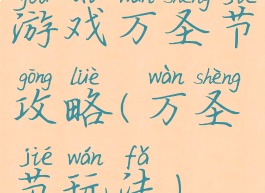 yóu xì wàn shèng jié
游戏万圣节
gōng lüè wàn shèng
攻略(万圣
jié wán fǎ
节玩法)